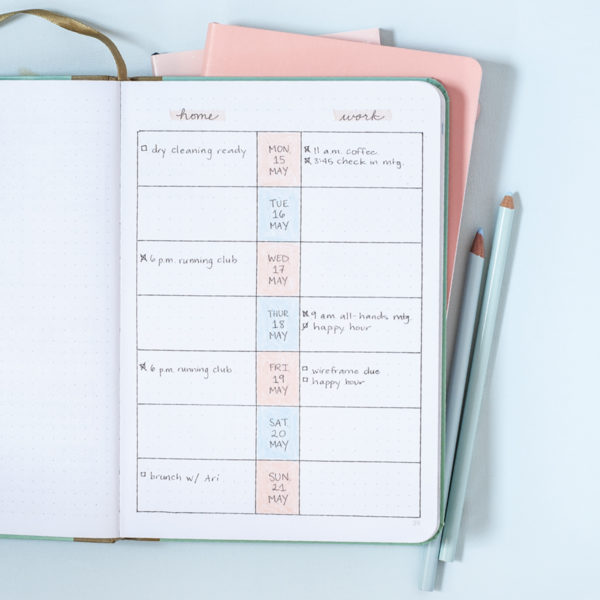 home work
dry cleaning ready
MON.
15
MAY
11 a.m. coffee
3:45 check in mtg.
TUE
16
MAY
6 p.m. running club
WED.
17
MAY
THUR
18
MAY
9 am all-hands mtg.
happy hour
6 p.m. running club
FRI
19
MAY
wireframe due
happy hour
SAT.
20
MAY
brunch w/ Ari
SUN.
21
MAY